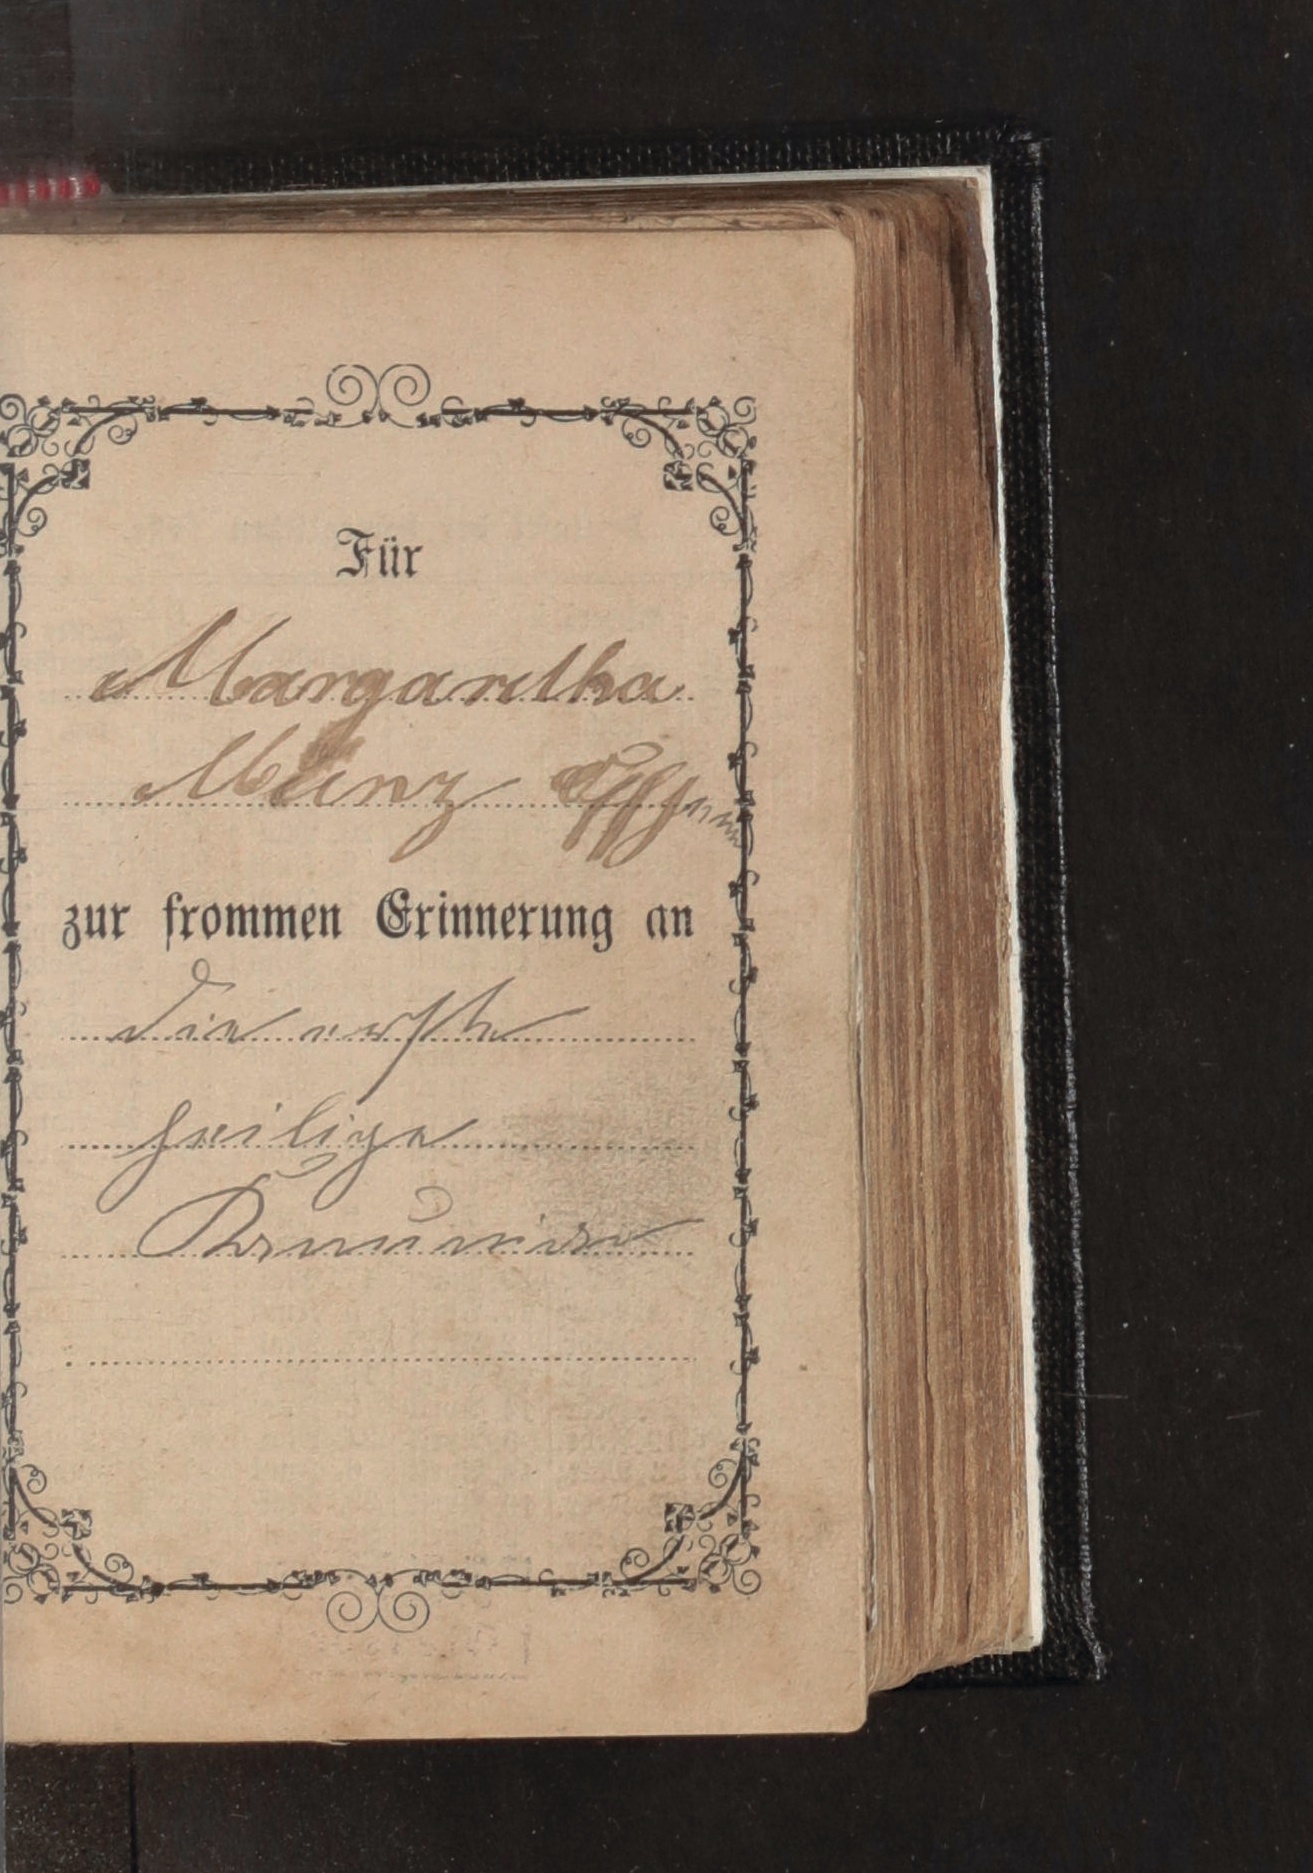 Für
Margaretha
Münz
zur frommen Erinnerung an
die erste
heilige
Kommunion